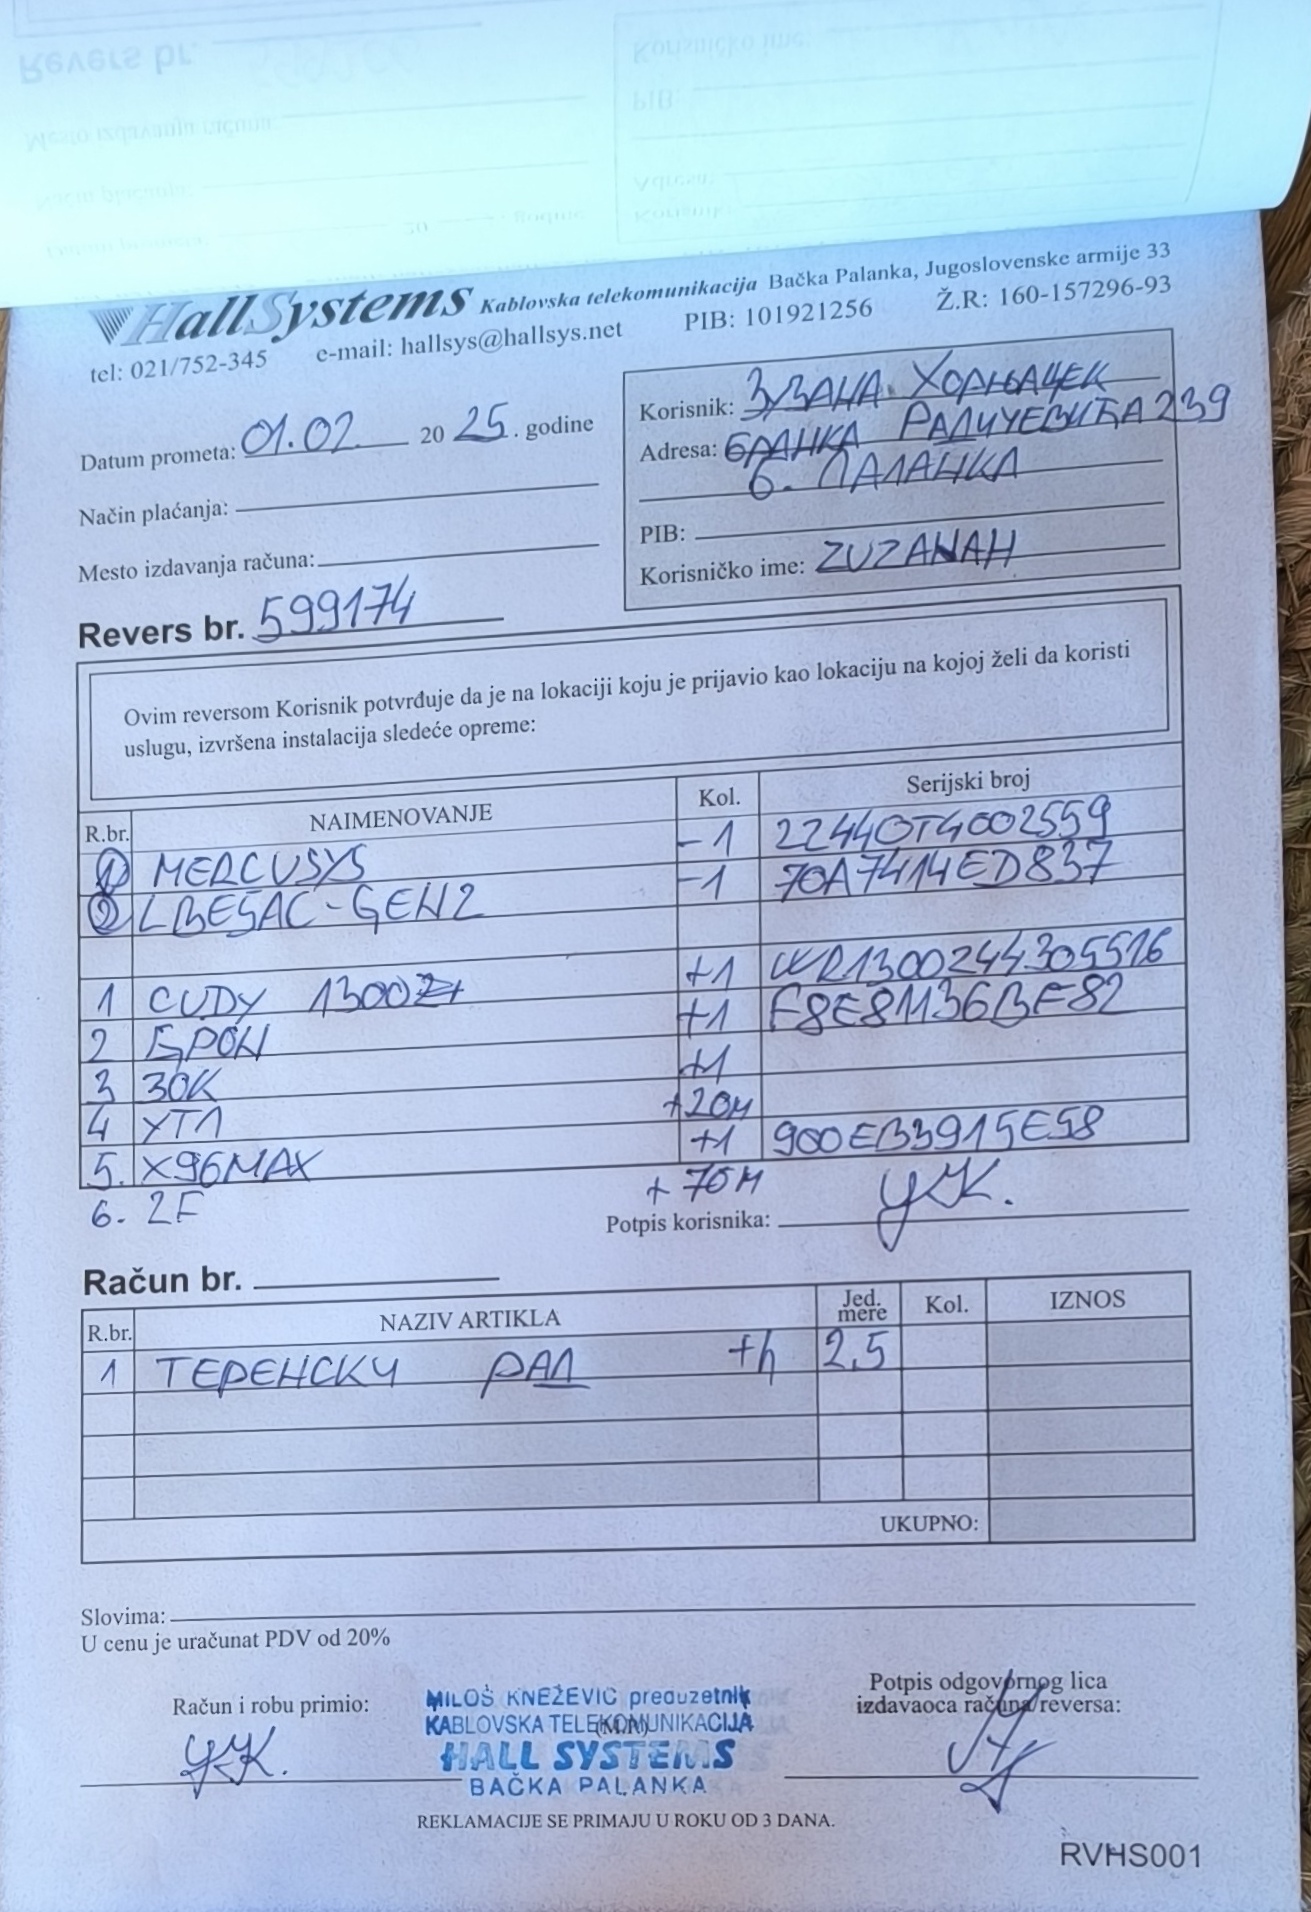 HallSystems Kablovska telekomunikacija Bačka Palanka, Jugoslovenske armije 33
tel: 021/752-345 e-mail: hallsys@hallsys.net PIB: 101921256 Ž.R: 160-157296-93
Datum prometa: 01.02. 2025. godine
Način plaćanja:
Mesto izdavanja računa:
Revers br. 599174
Korisnik: ЗУЗАНА ХОРЊАЧЕК
Adresa: БРАНКА РАДИЧЕВИЋА 239
Б. ПАЛАНКА
PIB:
Korisničko ime: ZUZANAH
Ovim reversom Korisnik potvrđuje da je na lokaciji koju je prijavio kao lokaciju na kojoj želi da koristi
uslugu, izvršena instalacija sledeće opreme:
R.br. NAIMENOVANJE Kol. Serijski broj
1 MERCUSYS -1 22440T4002559
2 LBE5AC-GEN2 -1 70A7414ED837
1 CUDY 1300 +1 WR1300244305516
2 GPON +1 F8E81136BE82
3 30K +1
4 УТП +20M
5. X96MAX +1 900EB3915E58
6. 2F +70M
Potpis korisnika:
Račun br.
R.br. NAZIV ARTIKLA Jed. mere Kol. IZNOS
1 ТЕРЕНСКИ РАД +h 2,5
UKUPNO:
Slovima:
U cenu je uračunat PDV od 20%
Račun i robu primio:
MILOŠ KNEŽEVIĆ preduzetnik
KABLOVSKA TELEKOMUNIKACIJA
(M.P.)
HALL SYSTEMS
BAČKA PALANKA
Potpis odgovornog lica
izdavaoca računa/reversa:
REKLAMACIJE SE PRIMAJU U ROKU OD 3 DANA.
RVHS001